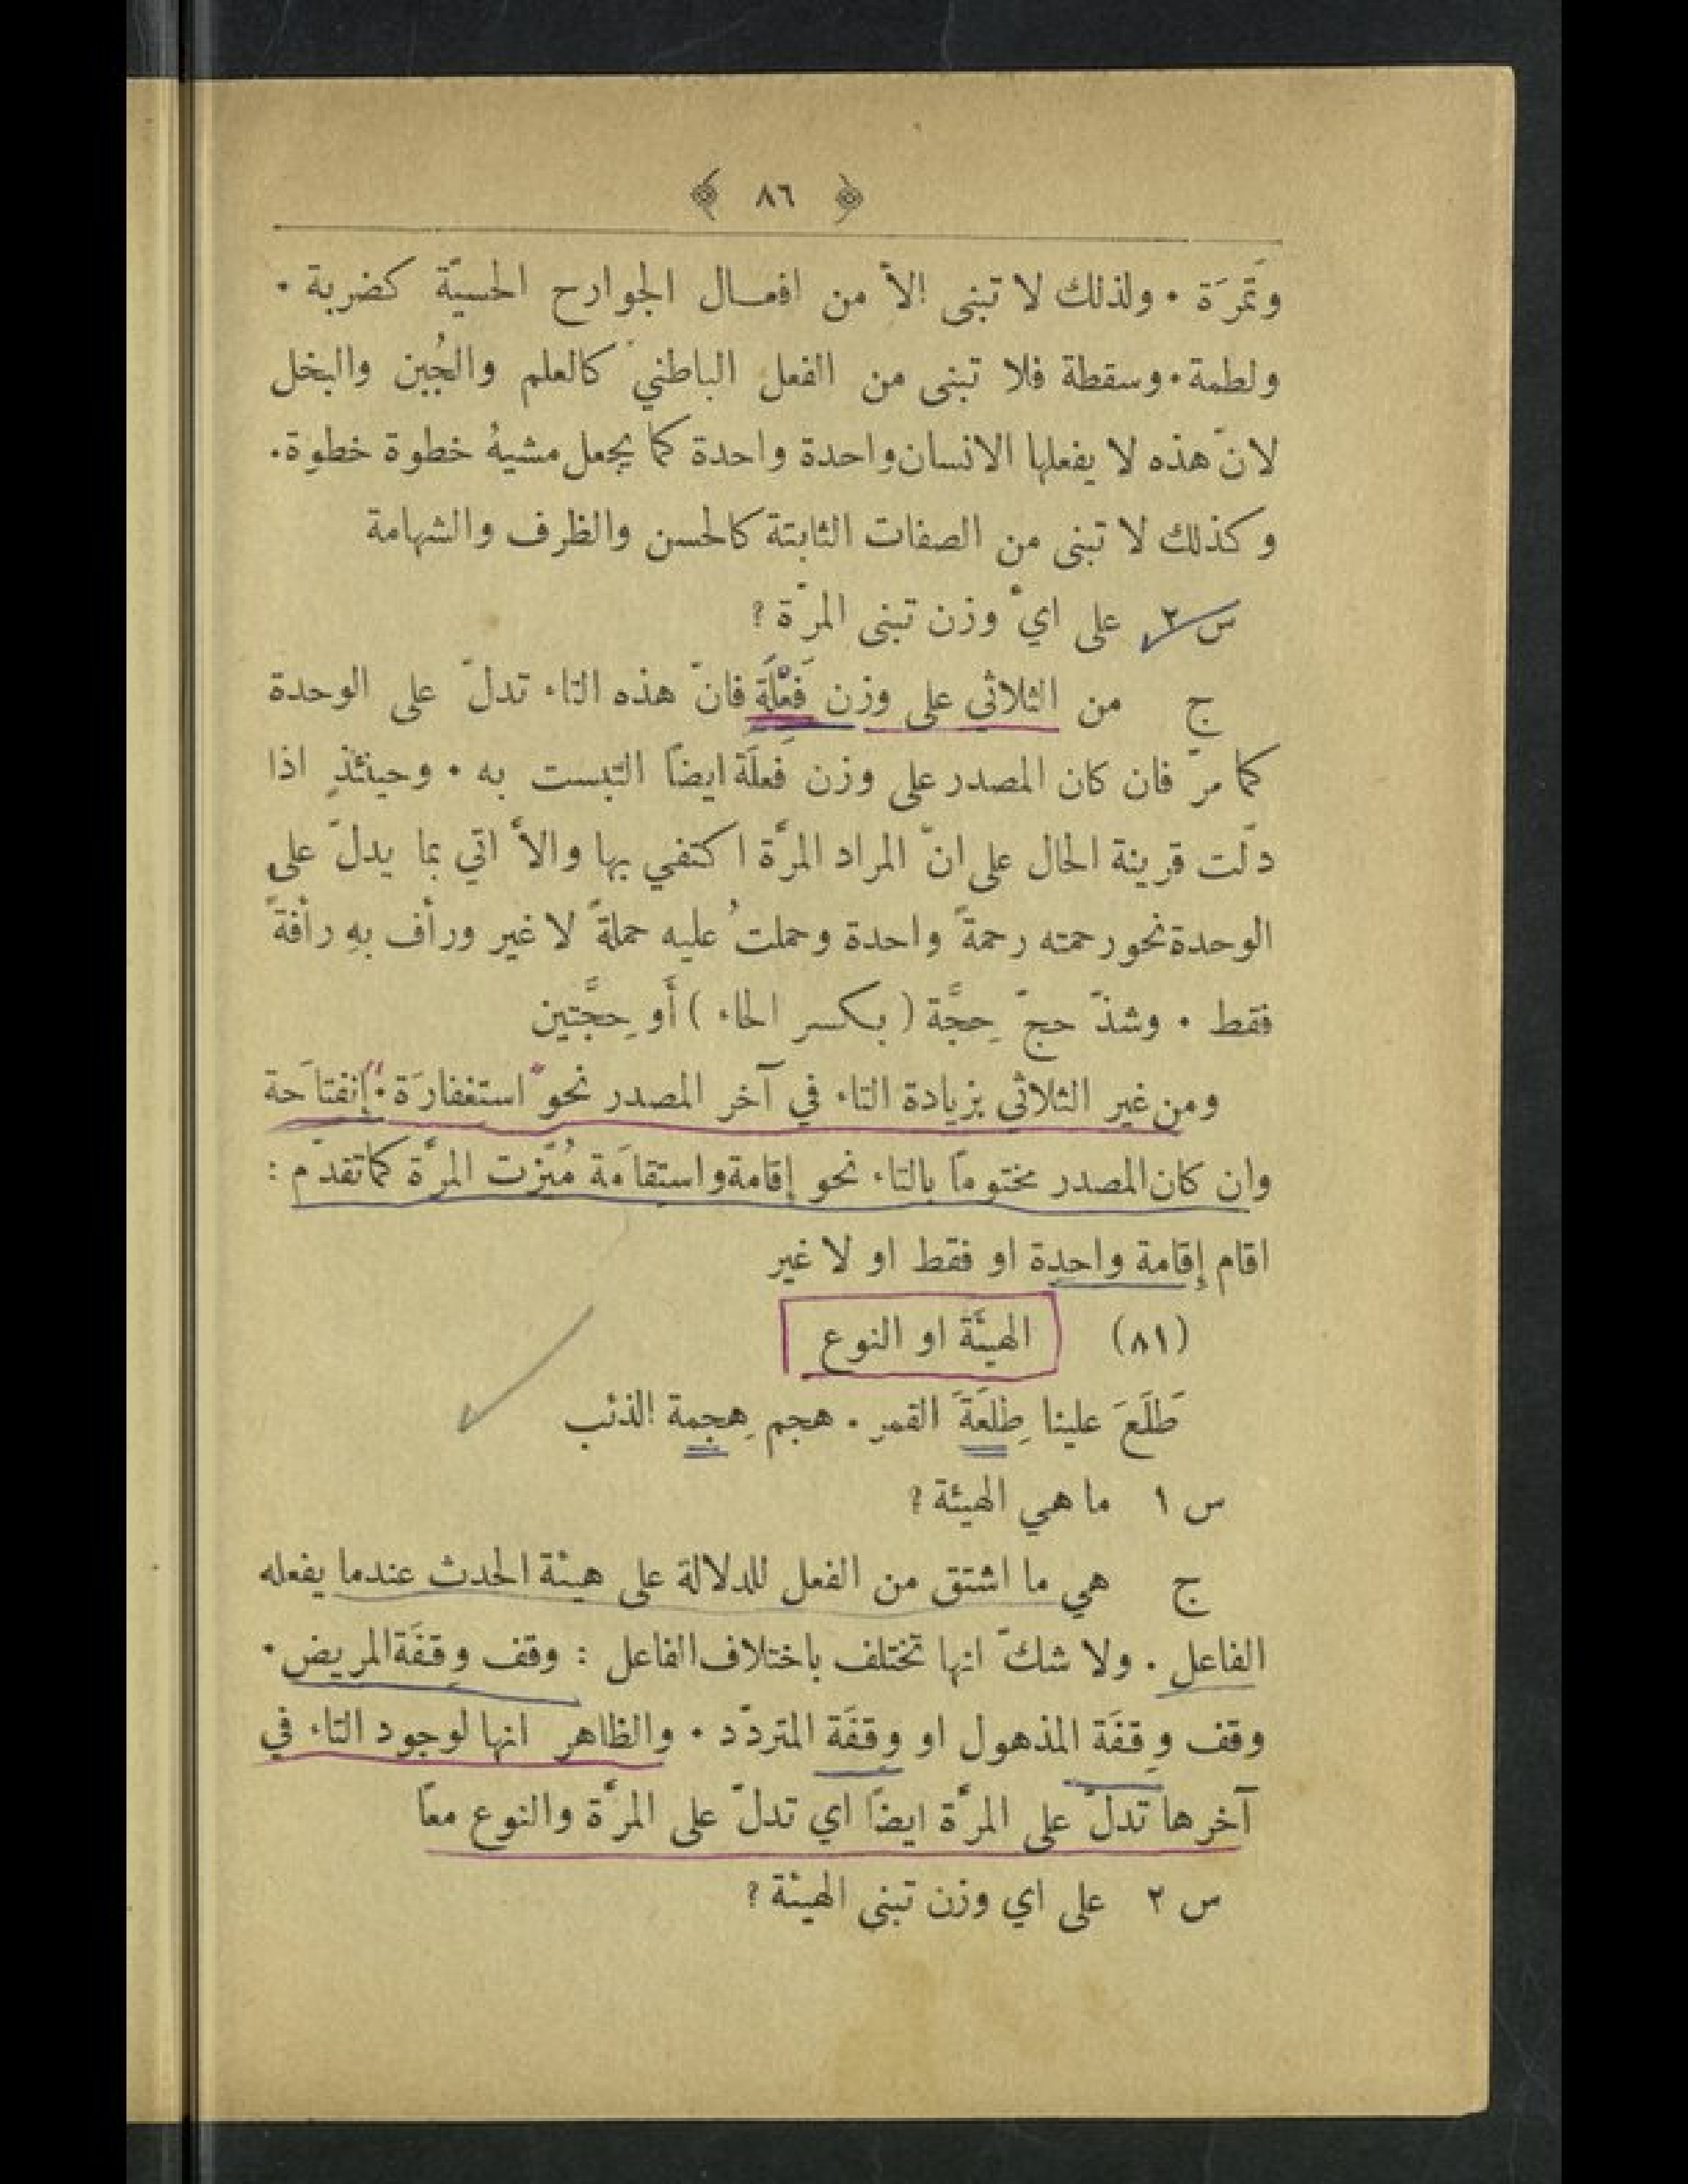 ﴿ ٨٦ ﴾
وتَمْرَة . ولذلك لا تبنى الاّ من افعـال الجوارح الحسيّة كضربة .
ولطمة . وسقطة فلا تبنى من الفعل الباطنيّ كالعلم والجُبن والبخل
لانّ هذه لا يفعلها الانسان واحدة واحدة كما يجعل مشيهُ خطوة خطوة .
وكذلك لا تبنى من الصفات الثابتة كالحسن والظرف والشهامة
س ٢ على ايّ وزن تبنى المرّة ؟
ج من الثلاثي على وزن فَعْلَة فانّ هذه التاء تدلّ على الوحدة
كما مرّ فان كان المصدر على وزن فَعلَة ايضاً التبست به . وحينئذٍ اذا
دلّت قرينة الحال على انّ المراد المرَّة اكتفي بها والاّ اتي بما يدلّ على
الوحدة نحو رحمته رحمةً واحدة وحملتُ عليه حملةً لا غير ورأف بهِ رأفةً
فقط . وشذّ حجّ حِجَّة ( بكسر الحاء ) أَو حِجَّتين
ومن غير الثلاثي بزيادة التاء في آخر المصدر نحو استغفارَة . إنفتاحَة
وان كان المصدر مختوماً بالتاء نحو إقامة واستقامَة مُيّزت المرَّة كما تقدّم :
اقام إقامة واحدة او فقط او لا غير
(٨١) الهيئَة او النوع
طَلَعَ علينا طِلعَةَ القمرِ . هجم هِجمة الذئب
س ١ ما هي الهيئة ؟
ج هي ما اشتق من الفعل للدلالة على هيئة الحدث عندما يفعله
الفاعل . ولا شكّ انها تختلف باختلاف الفاعل : وقف وِقفَة المريض .
وقف وِقفَة المذهول او وِقفَة المتردّد . والظاهر انها لوجود التاء في
آخرها تدلّ على المرَّة ايضاً اي تدلّ على المرَّة والنوع معاً
س ٢ على اي وزن تبنى الهيئة ؟